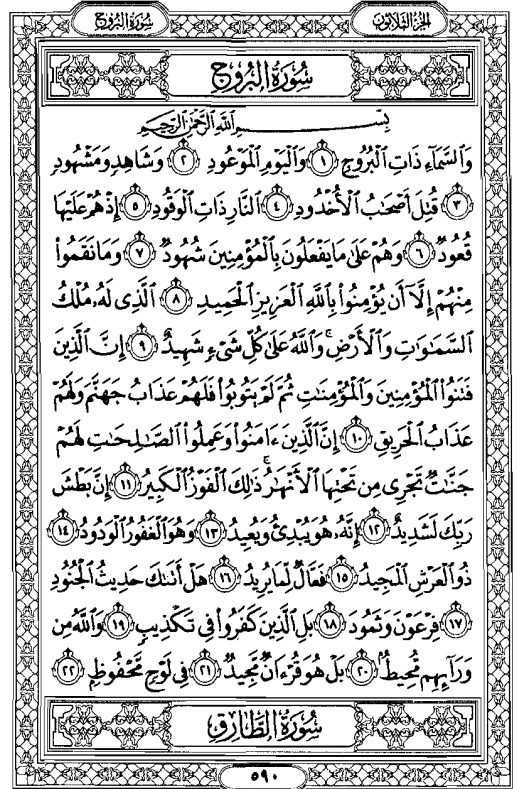 سُورَةُ البُرُوجِ الجُزْءُ الثَّلَاثُونَ
سُورَةُ البُرُوجِ
بِسْمِ اللَّهِ الرَّحْمَٰنِ الرَّحِيمِ
وَٱلسَّمَآءِ ذَاتِ ٱلْبُرُوجِ ١ وَٱلْيَوْمِ ٱلْمَوْعُودِ ٢ وَشَاهِدٍ وَمَشْهُودٍ
٣ قُتِلَ أَصْحَٰبُ ٱلْأُخْدُودِ ٤ ٱلنَّارِ ذَاتِ ٱلْوَقُودِ ٥ إِذْ هُمْ عَلَيْهَا
قُعُودٌ ٦ وَهُمْ عَلَىٰ مَا يَفْعَلُونَ بِٱلْمُؤْمِنِينَ شُهُودٌ ٧ وَمَا نَقَمُوا۟
مِنْهُمْ إِلَّآ أَن يُؤْمِنُوا۟ بِٱللَّهِ ٱلْعَزِيزِ ٱلْحَمِيدِ ٨ ٱلَّذِى لَهُۥ مُلْكُ
ٱلسَّمَٰوَٰتِ وَٱلْأَرْضِ ۚ وَٱللَّهُ عَلَىٰ كُلِّ شَىْءٍ شَهِيدٌ ٩ إِنَّ ٱلَّذِينَ
فَتَنُوا۟ ٱلْمُؤْمِنِينَ وَٱلْمُؤْمِنَٰتِ ثُمَّ لَمْ يَتُوبُوا۟ فَلَهُمْ عَذَابُ جَهَنَّمَ وَلَهُمْ
عَذَابُ ٱلْحَرِيقِ ١٠ إِنَّ ٱلَّذِينَ ءَامَنُوا۟ وَعَمِلُوا۟ ٱلصَّٰلِحَٰتِ لَهُمْ
جَنَّٰتٌ تَجْرِى مِن تَحْتِهَا ٱلْأَنْهَٰرُ ۚ ذَٰلِكَ ٱلْفَوْزُ ٱلْكَبِيرُ ١١ إِنَّ بَطْشَ
رَبِّكَ لَشَدِيدٌ ١٢ إِنَّهُۥ هُوَ يُبْدِئُ وَيُعِيدُ ١٣ وَهُوَ ٱلْغَفُورُ ٱلْوَدُودُ ١٤
ذُو ٱلْعَرْشِ ٱلْمَجِيدُ ١٥ فَعَّالٌ لِّمَا يُرِيدُ ١٦ هَلْ أَتَىٰكَ حَدِيثُ ٱلْجُنُودِ
١٧ فِرْعَوْنَ وَثَمُودَ ١٨ بَلِ ٱلَّذِينَ كَفَرُوا۟ فِى تَكْذِيبٍ ١٩ وَٱللَّهُ مِن
وَرَآئِهِم مُّحِيطٌۢ ٢٠ بَلْ هُوَ قُرْءَانٌ مَّجِيدٌ ٢١ فِى لَوْحٍ مَّحْفُوظٍۭ ٢٢
سُورَةُ الطَّارِقِ
٥٩٠